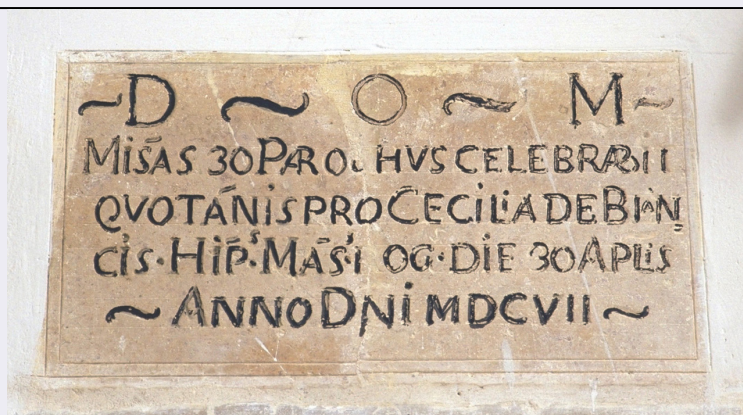 ~D ~ O ~ M~
MIS̄AS 30 PAROCHVS CELEBRABIT
QVOTĀNIS PRO CECILIA DE BIAN
CIS· HIP̄·S MĀS·I OG·DIE 30 APLIS
~ ANNO DNI MDCVII ~